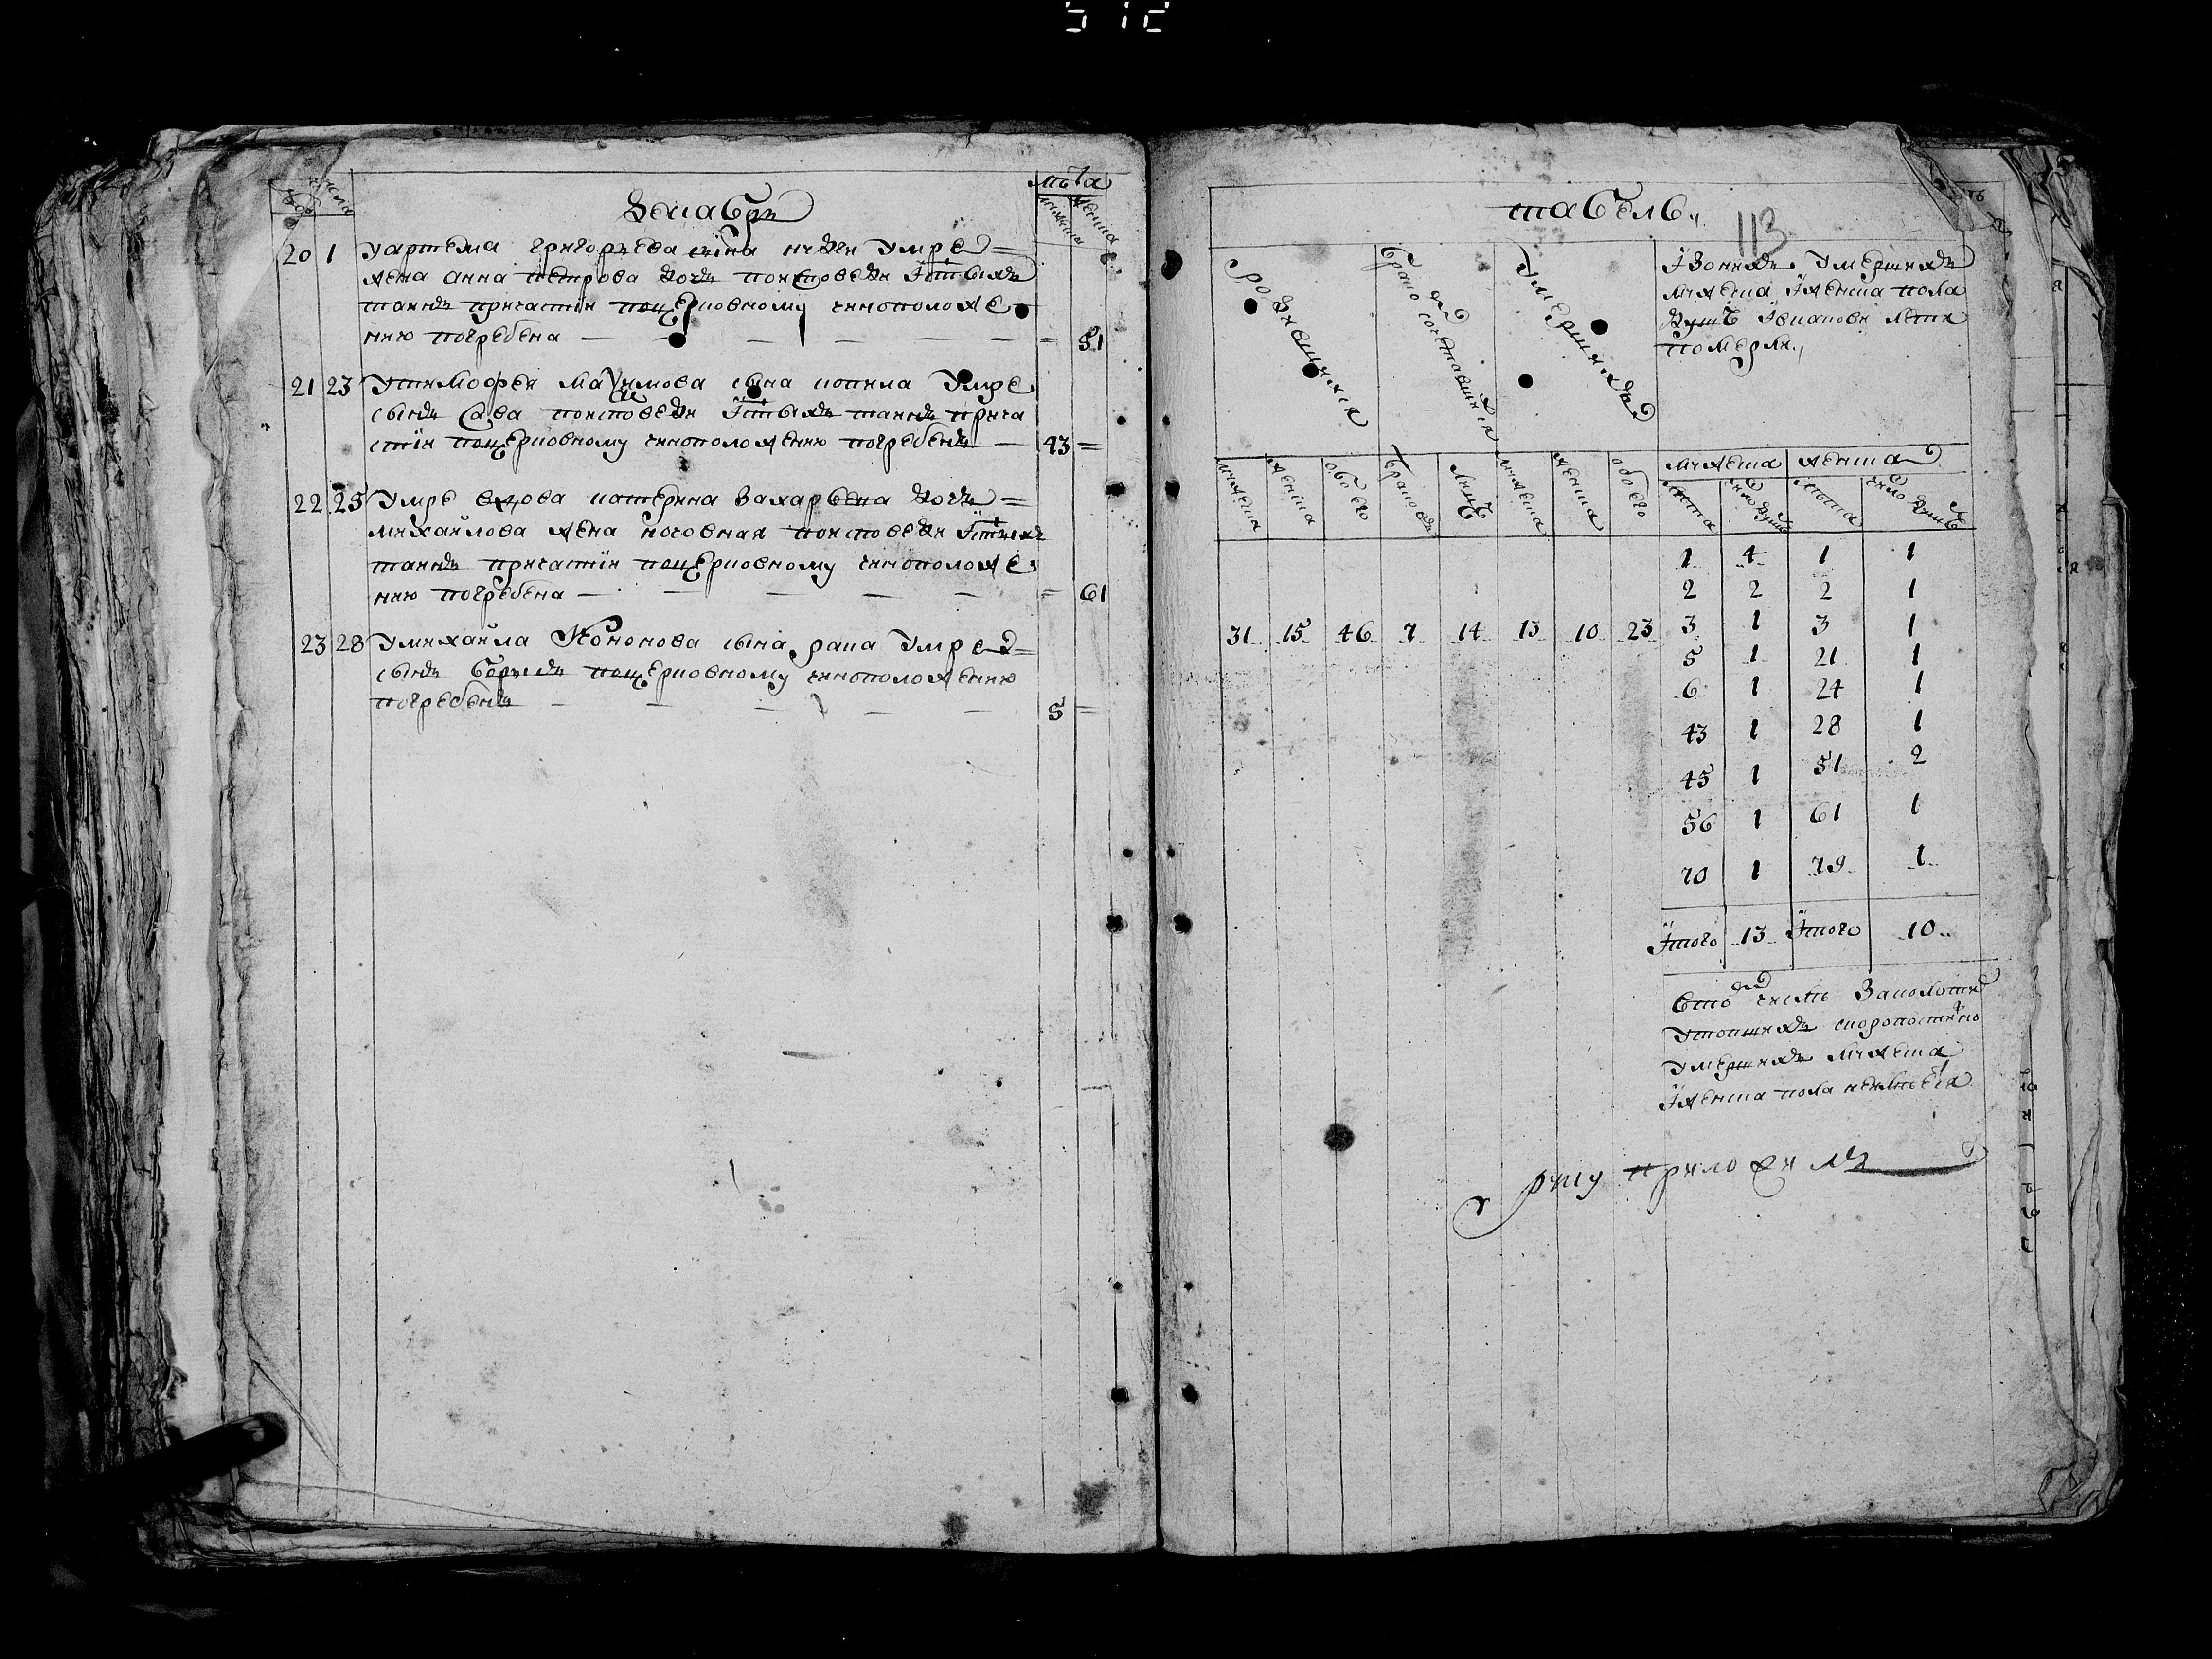 512
число
лѣта
Декабрь
мужеска
женска
20 1 У артема григорьева сына нуден умре
жена анна петрова дочь по исповеди и стыхъ
таинъ причастіи по церковному чиноположе
нию погребена — 51
21 23 У тимофея маѯимова сына копила умре
сынъ сава по исповеди и стыхъ таинъ прича
стіи по церковному чиноположению погребенъ — 43
22 25 Умре вдова катерина захарьевна дочь
михайлова жена ноговная по исповеди и стыхъ
таинъ причастіи по церковному чиноположе
нию погребена — 61
23 28 У михайла Кононова сына рака умре
сынъ борисъ по церковному чиноположению
погребенъ — 5
табель
113
родившихся
Браковъ сочетавшихся
Умершихъ
Изоных Умершихъ
мужеска и женска пола
душъ и каковы лети
померли
мужеска женска обоего браковъ лицъ мужеска женска обоего
мужеска женска
лета число душъ лета число душъ
1 4 1 1
2 2 2 1
31 15 46 7 14 13 10 23 3 1 3 1
5 1 21 1
6 1 24 1
43 1 28 1
45 1 51 2
56 1 61 1
70 1 79 1
Итого 13 Итого 10
Втомъ числѣ
утопшихъ скоропостижно
умершихъ мужеска
и женска пола неимѣется
руку приложилъ